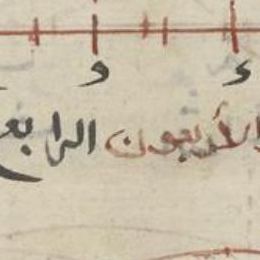 ء و
الأربعون الرابع